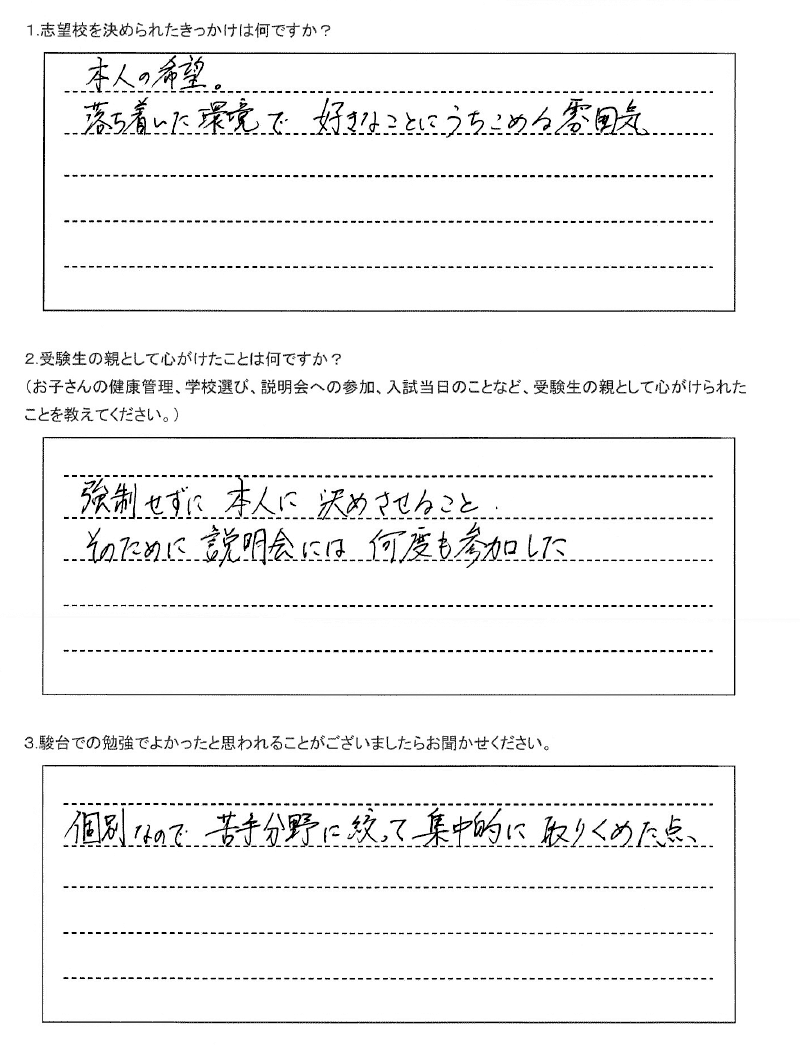 1.志望校を決められたきっかけは何ですか？
本人の希望。
落ち着いた環境で 好きなことにうちこめる雰囲気
2.受験生の親として心がけたことは何ですか？
（お子さんの健康管理、学校選び、説明会への参加、入試当日のことなど、受験生の親として心がけられた
ことを教えてください。）
強制せずに 本人に 決めさせること.
そのために 説明会には 何度も参加した
3.駿台での勉強でよかったと思われることがございましたらお聞かせください。
個別なので 苦手分野に絞って 集中的に 取りくめた点、